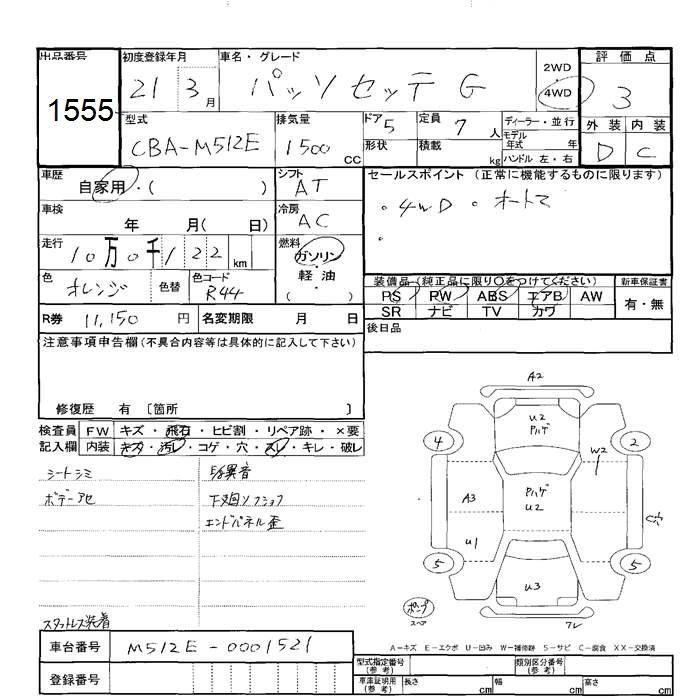 出品番号
1555
初度登録年月
21 3月
車名・グレード
パッソセッテ G
2WD
4WD
評価点
3
外装 内装
D C
型式
CBA-M512E
排気量
1500 CC
ドア 5
形状
定員 7 人
積載 kg
ディーラー・並行
モデル年式 年
ハンドル 左・右
車歴
自家用・( )
シフト
AT
セールスポイント (正常に機能するものに限ります)
・4WD ・オートマ
・
車検
年 月( 日)
冷房
AC
走行
10万0千122km
燃料
ガソリン
・
軽油
( )
色
オレンジ
色替
色コード
R44
装備品(純正品に限り〇をつけてください)
PS PW ABS エアB AW
SR ナビ TV カワ
新車保証書
有・無
R券 11,150 円
名変期限 月 日
後日品
注意事項申告欄(不具合内容等は具体的に記入して下さい)
修復歴 有 〔箇所 〕
検査員記入欄
FW キズ・飛石・ヒビ割・リペア跡・×要
内装 キズ・汚レ・コゲ・穴・スレ・キレ・破レ
シートシミ
ボデーアセ
異音
エンドパネル歪
スタットレス装着
A2
U2
Pハゲ
4
2
W2
A3
Pハゲ
U2
U1
5
5
U3
スペア
フレ
A-キズ E-エクボ U-凹み W-補修跡 S-サビ C-腐食 XX-交換済
車台番号
M512E-0001521
登録番号
型式指定番号(参考)
類別区分番号(参考)
車庫証明用(参考)
長さ cm
幅 cm
高さ cm